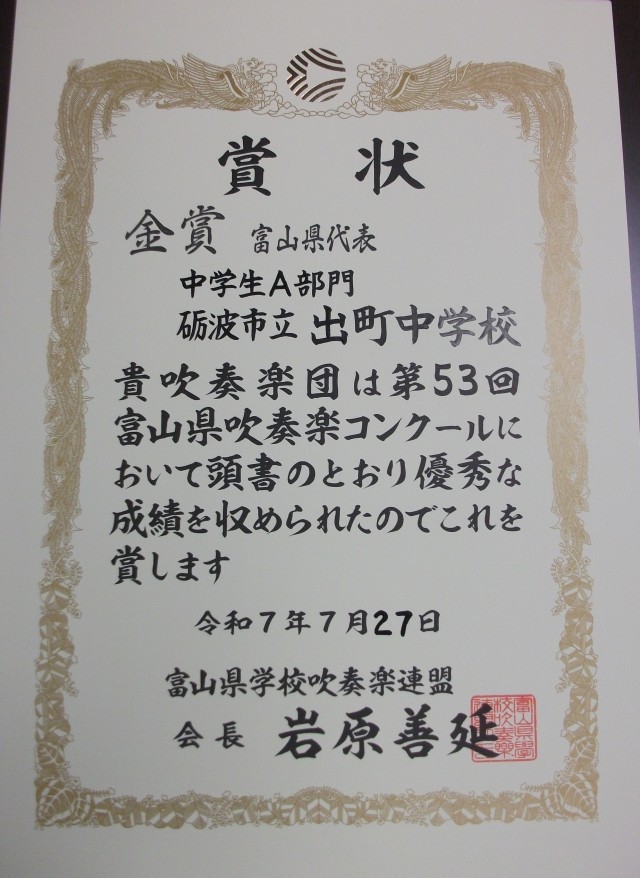 賞状
金賞 富山県代表
中学生A部門
砺波市立 出町中学校
貴吹奏楽団は第53回
富山県吹奏楽コンクールに
おいて頭書のとおり優秀な
成績を収められたのでこれを
賞します
令和7年7月27日
富山県学校吹奏楽連盟
会長 岩原善延